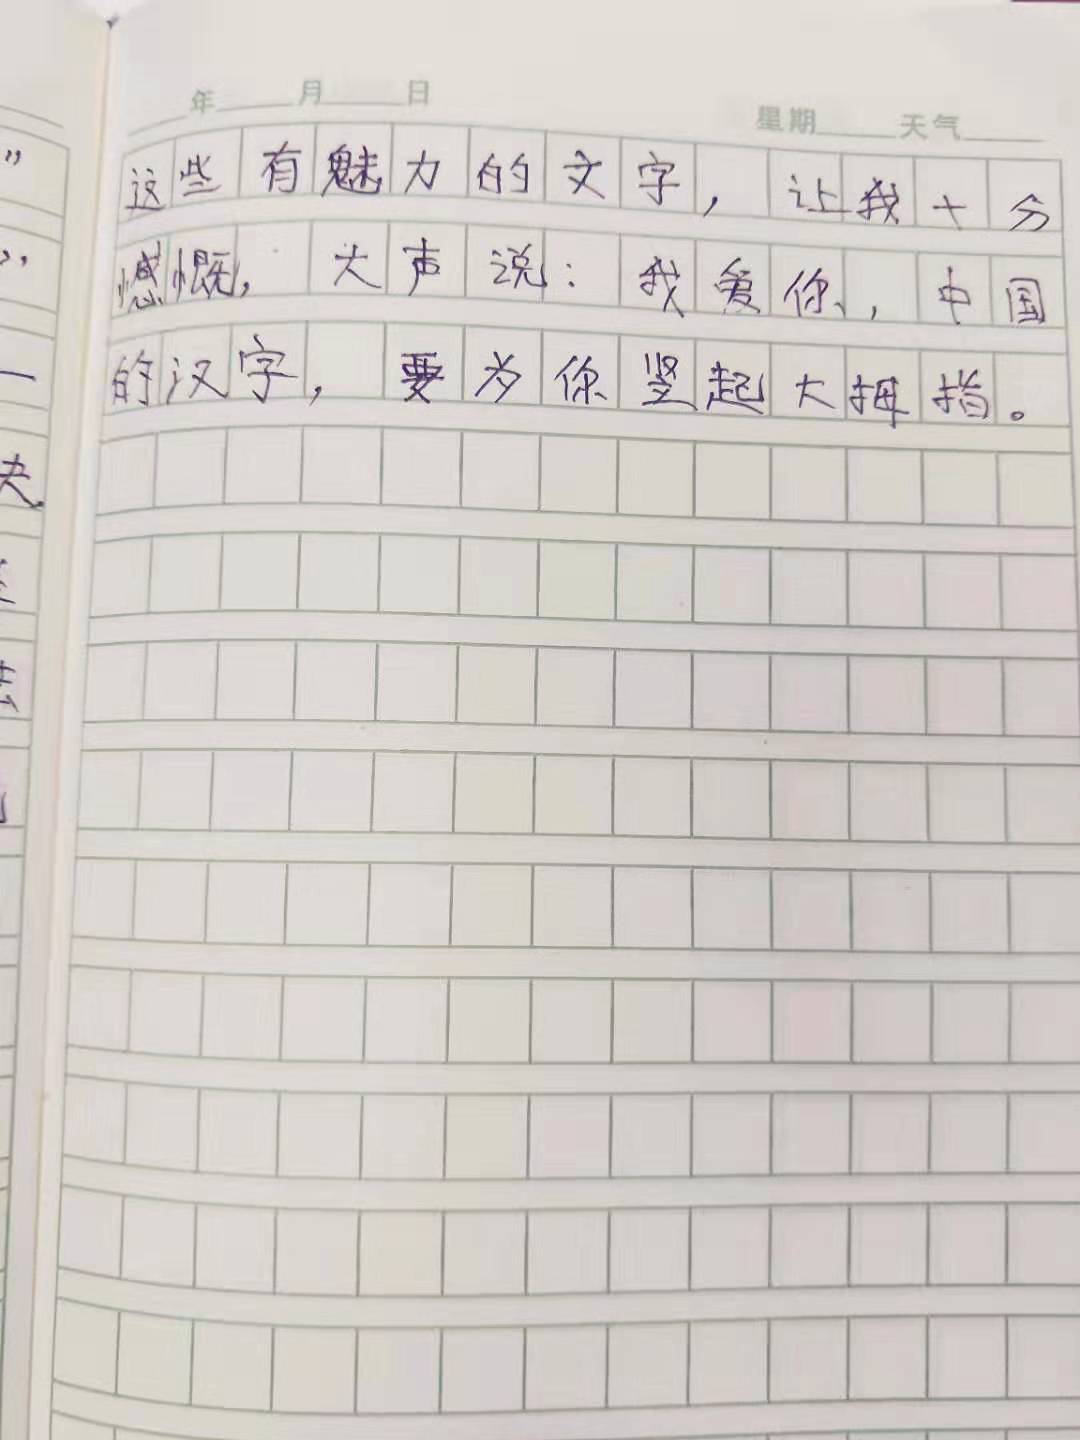 年 月 日 星期 天气
这些有魅力的文字，让我十分
憾慨，大声说：我爱你，中国
的汉字，要为你竖起大拇指。